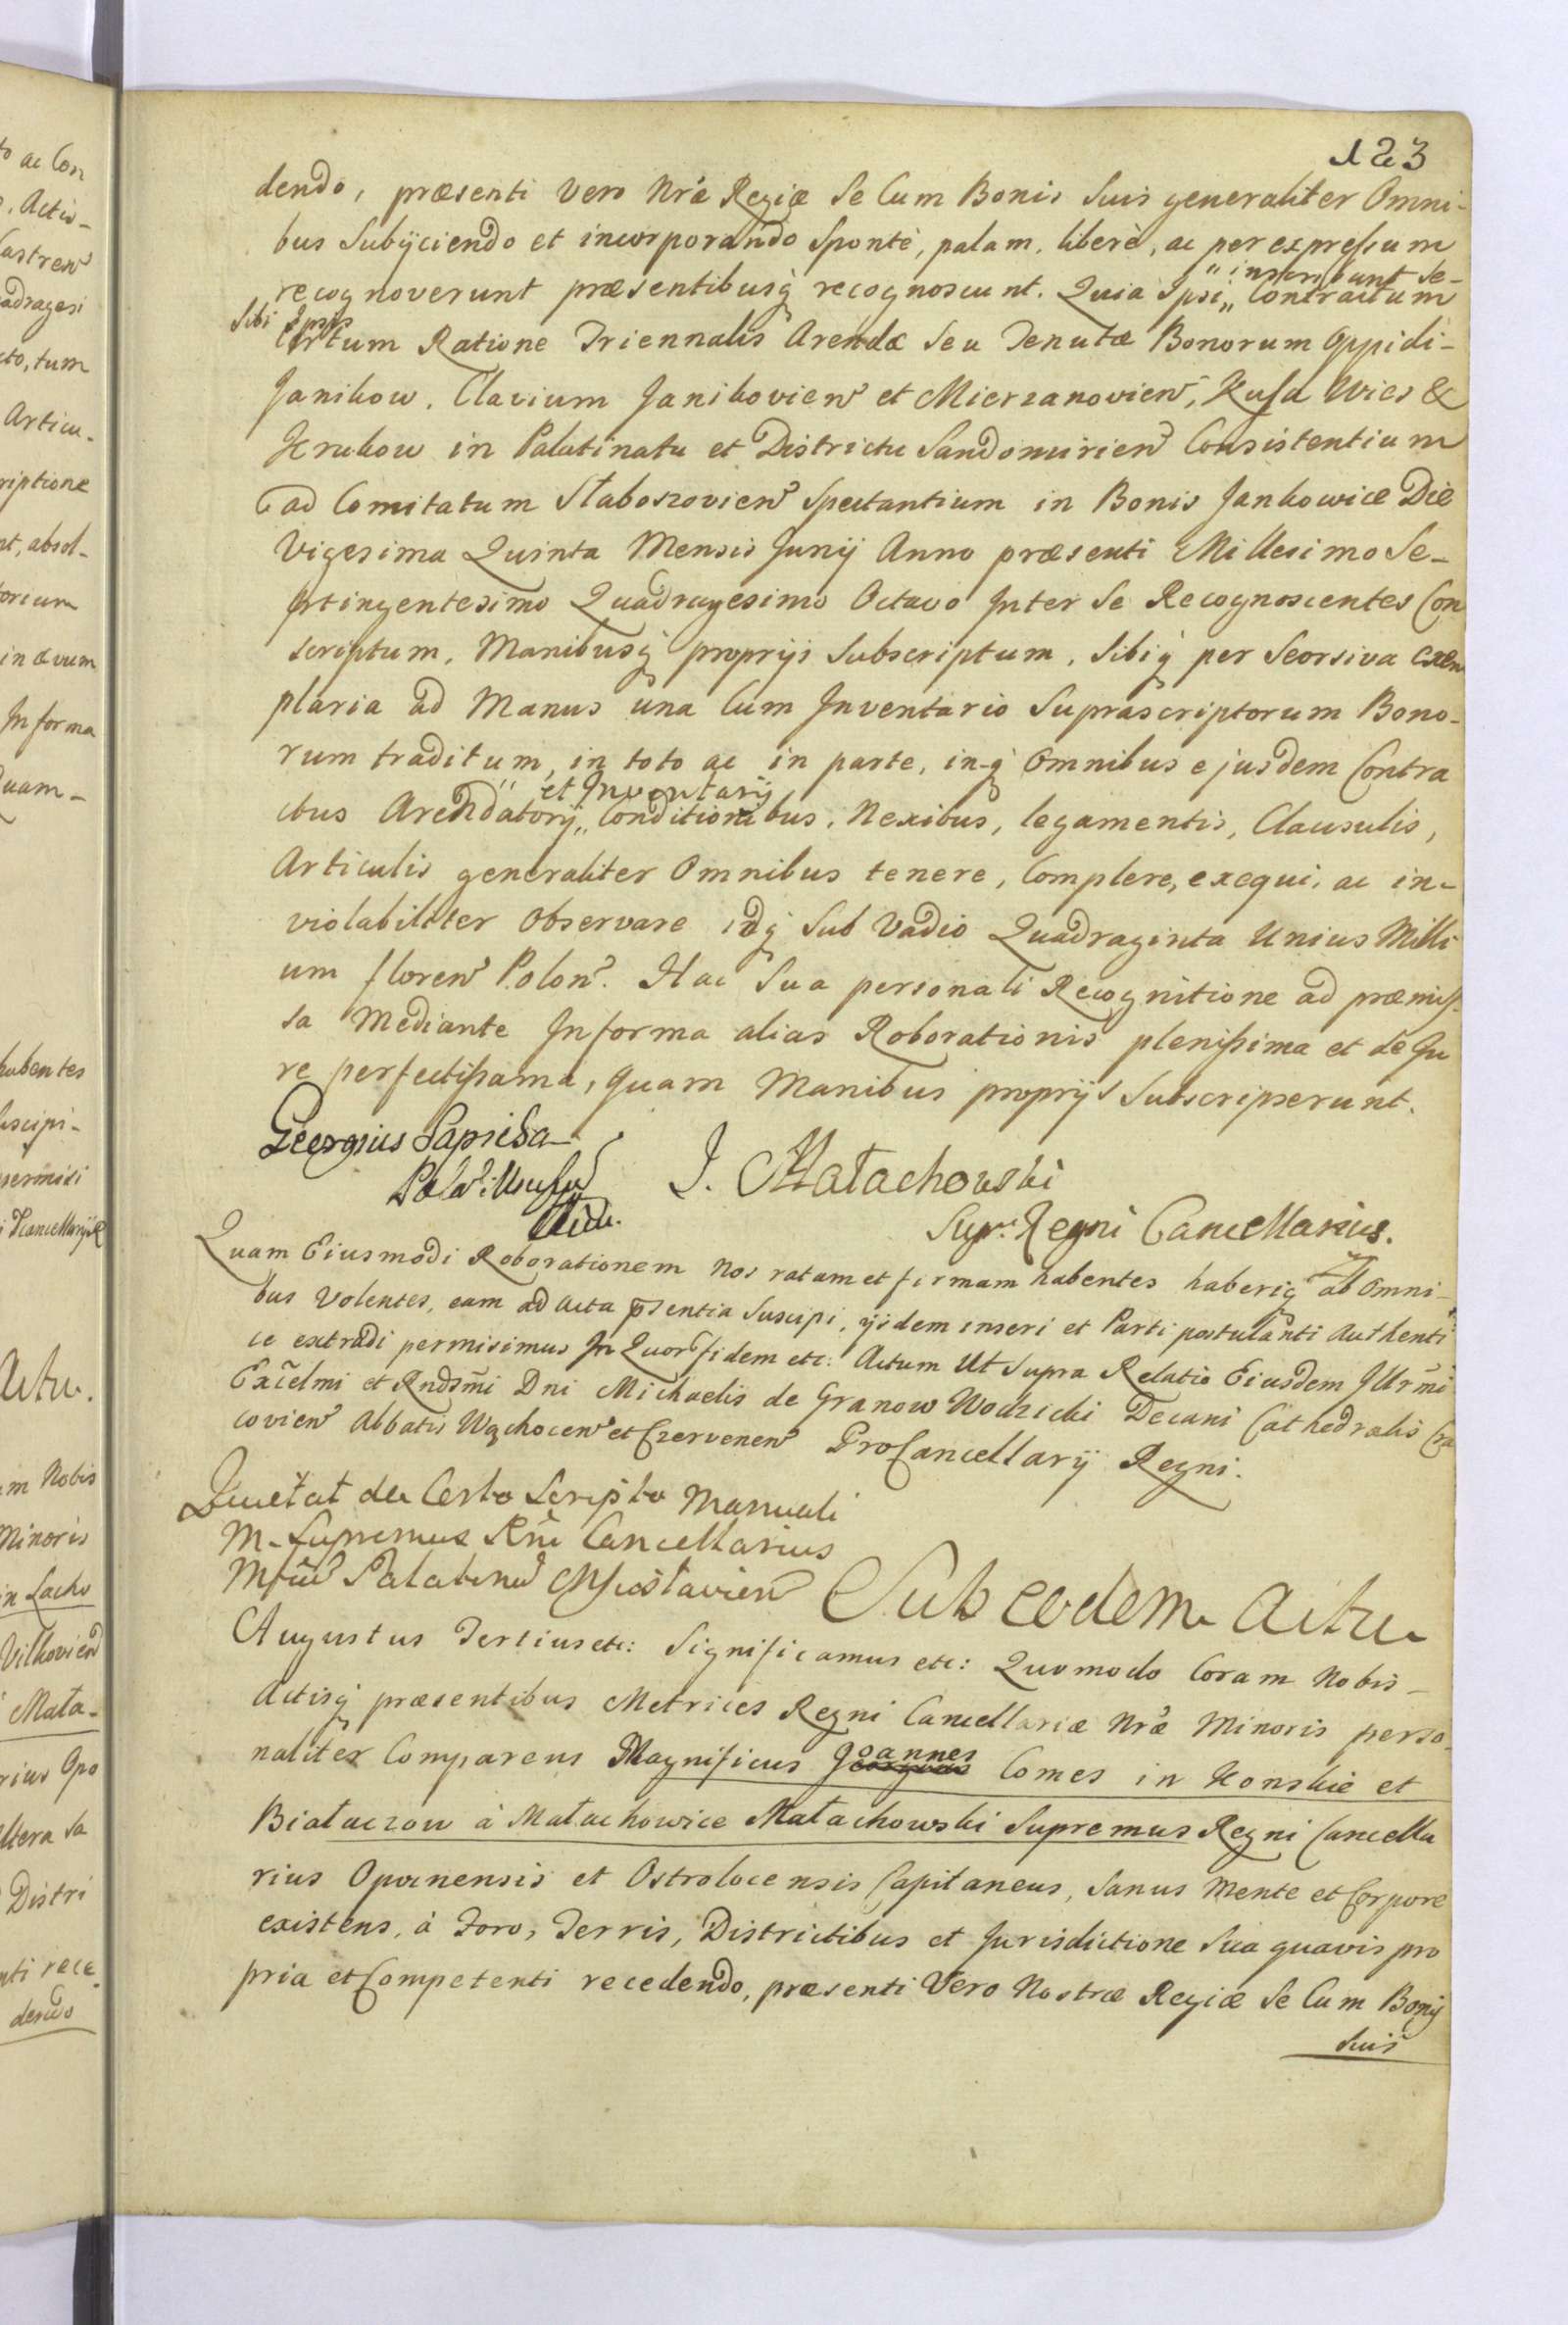 123
dendo, præsenti vero Nræ Regiæ Se Cum Bonis Suis generaliter Omni-
bus Subijciendo et incorporando Spontè, palam, liberè, ac per expressum
recognoverunt præsentibusq recognoscunt. Quia Ipsi „ inscribunt Se- „ Contractum
Sibi Ipsis
Certum Ratione Triennalis Arendæ Seu Tenutæ Bonorum Oppidi-
Janikow, Clavium Janikovien et Mierzanovien, Kusa Wies &
Krukow in Palatinatu et Districtu Sandomirien Consistentium
ad Comitatum Słaboszovien Spectantium in Bonis Jankowice Die
Vigesima Quinta Mensis Junij Anno præsenti Millesimo Se-
ptingentesimo Quadragesimo Octavo Inter Se Recognoscentes Con
scriptum, Manibusq proprijs Subscriptum, Sibiq per Seorsiva Exem
plaria ad Manus una Cum Inventario Suprascriptorum Bono-
rum traditum, in toto ac in parte, in-q Omnibus ejusdem Contra
ctus Arendatorij „ et Inventarij „ Conditionibus, Nexibus, legamentis, Clausulis,
Articulis generaliter Omnibus tenere, Complere, exequi, ac in-
violabiliter Observare idq Sub Vadio Quadraginta Unius Milli
um floren Polon. Hac Sua personali Recognitione ad præmiss-
sa Mediante In forma alias Roborationis plenissima et de Ju
re perfectissama, Quam Manibus proprijs Subscripserunt.
Georgius Sapieha
J. Małachowski
Supr. Regni Cancellarius.
Quam Eiusmodi Roborationem Nos ratam et firmam habentes haberiq ab Omni-
bus Volentes, eam ad Acta pœntia Suscipi, ijsdem inseri et Parti postulanti Authenti
ce extradi permisimus In Quor fidem etc: Actum Ut Supra Relatio Eiusdem Illrmi
Excelmi et Rndsmi Dni Michaelis de Granow Wodzicki Decani Cathedralis Cra
covien Abbatis Wąchocen et Czervenen ProCancellarij Regni.
Quietat de Certo Scripto Manuali
M. Supremus Rni Cancellarius
Mfcu Palatinu Mscislavien
Sub eodem Actu
Augustus Tertius etc: Significamus etc: Quomodo Coram Nobis-
Actisq præsentibus Metrices Regni Cancellariæ Nræ Minoris perso-
naliter Comparens Magnificus Joannes Comes in Konskie et
Białaczow à Małachowice Małachowski Supremus Regni Cancella
rius Opocnensis et Ostrolocensis Capitaneus, Sanus Mente et Corpore
existens, à Foro, Terris, Districtibus et Jurisdictione Sua quavis pro
pria et Competenti recedendo, præsenti Vero Nostræ Regiæ Se Cum Bonij
Suis